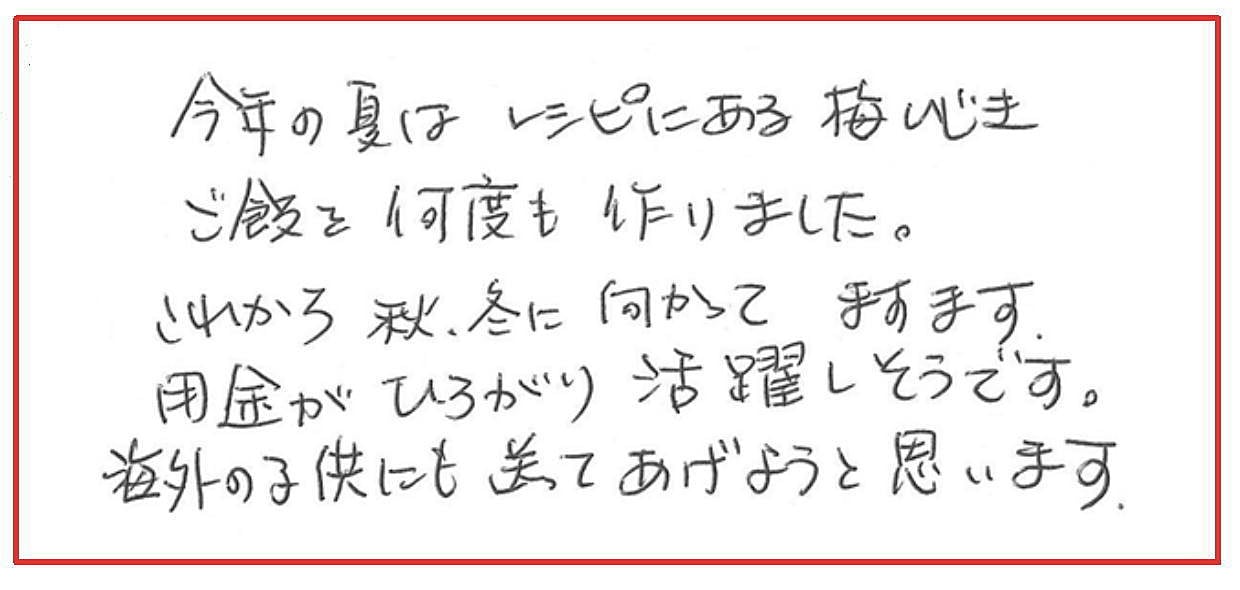 今年の夏は レシピにある 梅ひじき
ご飯を 何度も 作りました。
これから 秋、冬に 向かって ますます.
用途が ひろがり 活躍しそうです。
海外の子供にも 送って あげようと 思います.